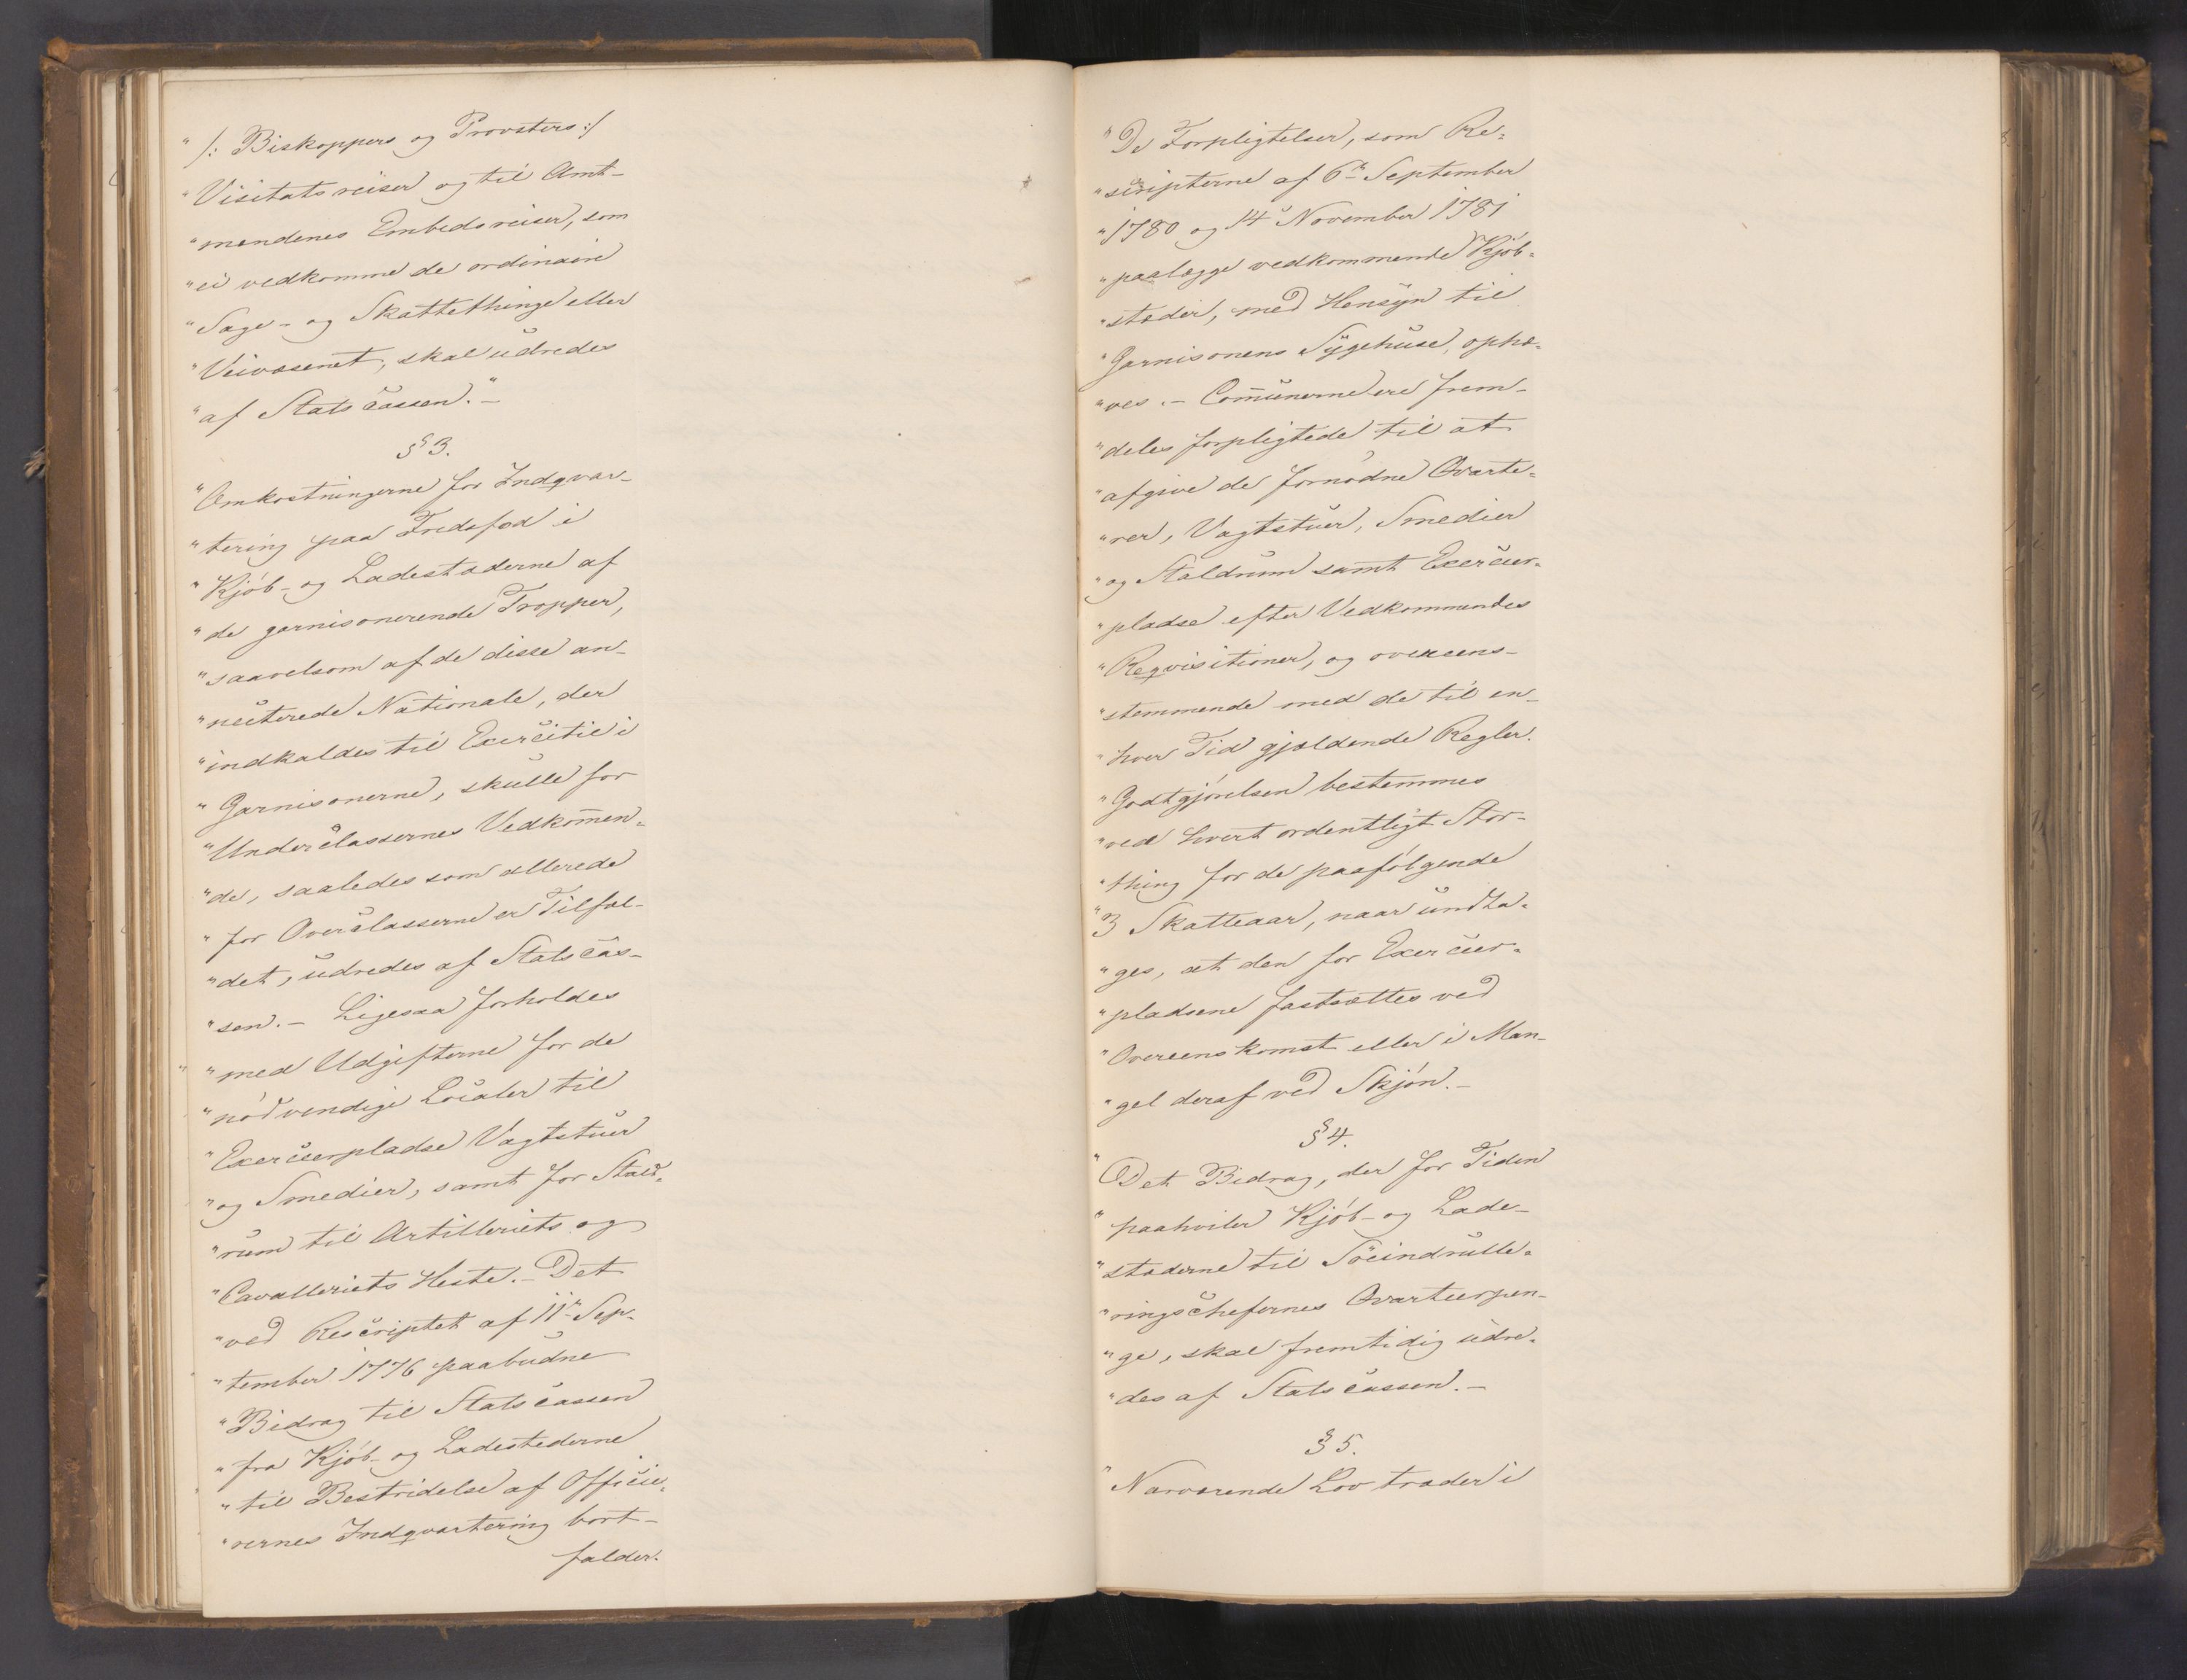 " /: Biskoppers og Provsters :/
"Visitatsreiser og til Amt-
"mændenes Embedsreiser, som
"ei vedkomme de ordinaire
"Sage- og Skattethinge eller
"Veivæsenet, skal udredes
"af Statscassen." -
§ 3.
"Omkostningerne for Indqvar-
"tering paa Fredsfod i
"Kjøb- og Ladestæderne af
"de garnisonerende Tropper,
"saavelsom af de disse an-
"necterede Nationale, der
"indkaldes til Exercitie i
"Garnisonerne, skulle for
"Underclassernes Vedkom̅en-
"de, saaledes som allerede
"for Overclasserne er Tilfæl-
"det, udredes af Statscas-
"sen. - Ligesaa forholdes
"med Udgifterne for de
"nødvendige Localer til
"Exerceerpladse Vagtstuer
"og Smedier, samt for Stald-
"rum til Artilleriets og
"Cavalleriets Heste. - Det
"ved Rescriptet af 11te Sep-
"tember 1776 paabudne
"Bidrag til Statscassen
"fra Kjøb- og Ladestederne
"til Bestridelse af Officie-
"rernes Indqvartering bort-
falder.
"De Forpligtelser, som Re-
"scripterne af 6te September
"1780 og 14de November 1781
"paalægge vedkommende Kjøb-
"stæder, med Hensyn til
"Garnisonens Sygehuse, ophæ-
"ves. - Com̅unerne ere frem-
"deles forpligtede til at
"afgive de fornødne Qvarte-
"rer, Vagtstuer, Smedier
"og Staldrum samt Exerceer-
"pladse efter Vedkommendes
"Reqvisitioner, og overeens-
"stemmende med de til en-
"hver Tid gjældende Regler.
"Godtgjørelsen bestemmes
"ved hvert ordentligt Stor-
"thing for de paafølgende
"3 Skatteaar, naar undta-
"ges, at den for Exerceer-
"pladsene fastsættes ved
"Overeenskomst eller i Man-
"gel deraf ved Skjøn. -
§ 4.
"Det Bidrag, der for Tiden
"paahviler Kjøb- og Lade-
"stæderne til Søeindrulle-
"ringschefernes Qvarteerpen-
"ge, skal fremtidig udre-
"des af Statscassen. -
§ 5.
"Nærværende Lov træder i